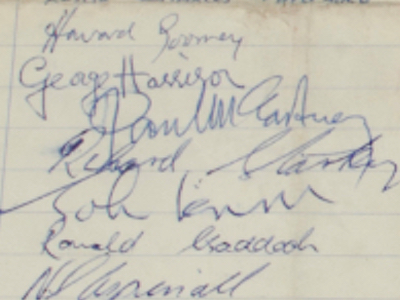 Howard
George Harrison
Paul McCartney
Richard Starkey
John Lennon
Ronald
N Aspinall